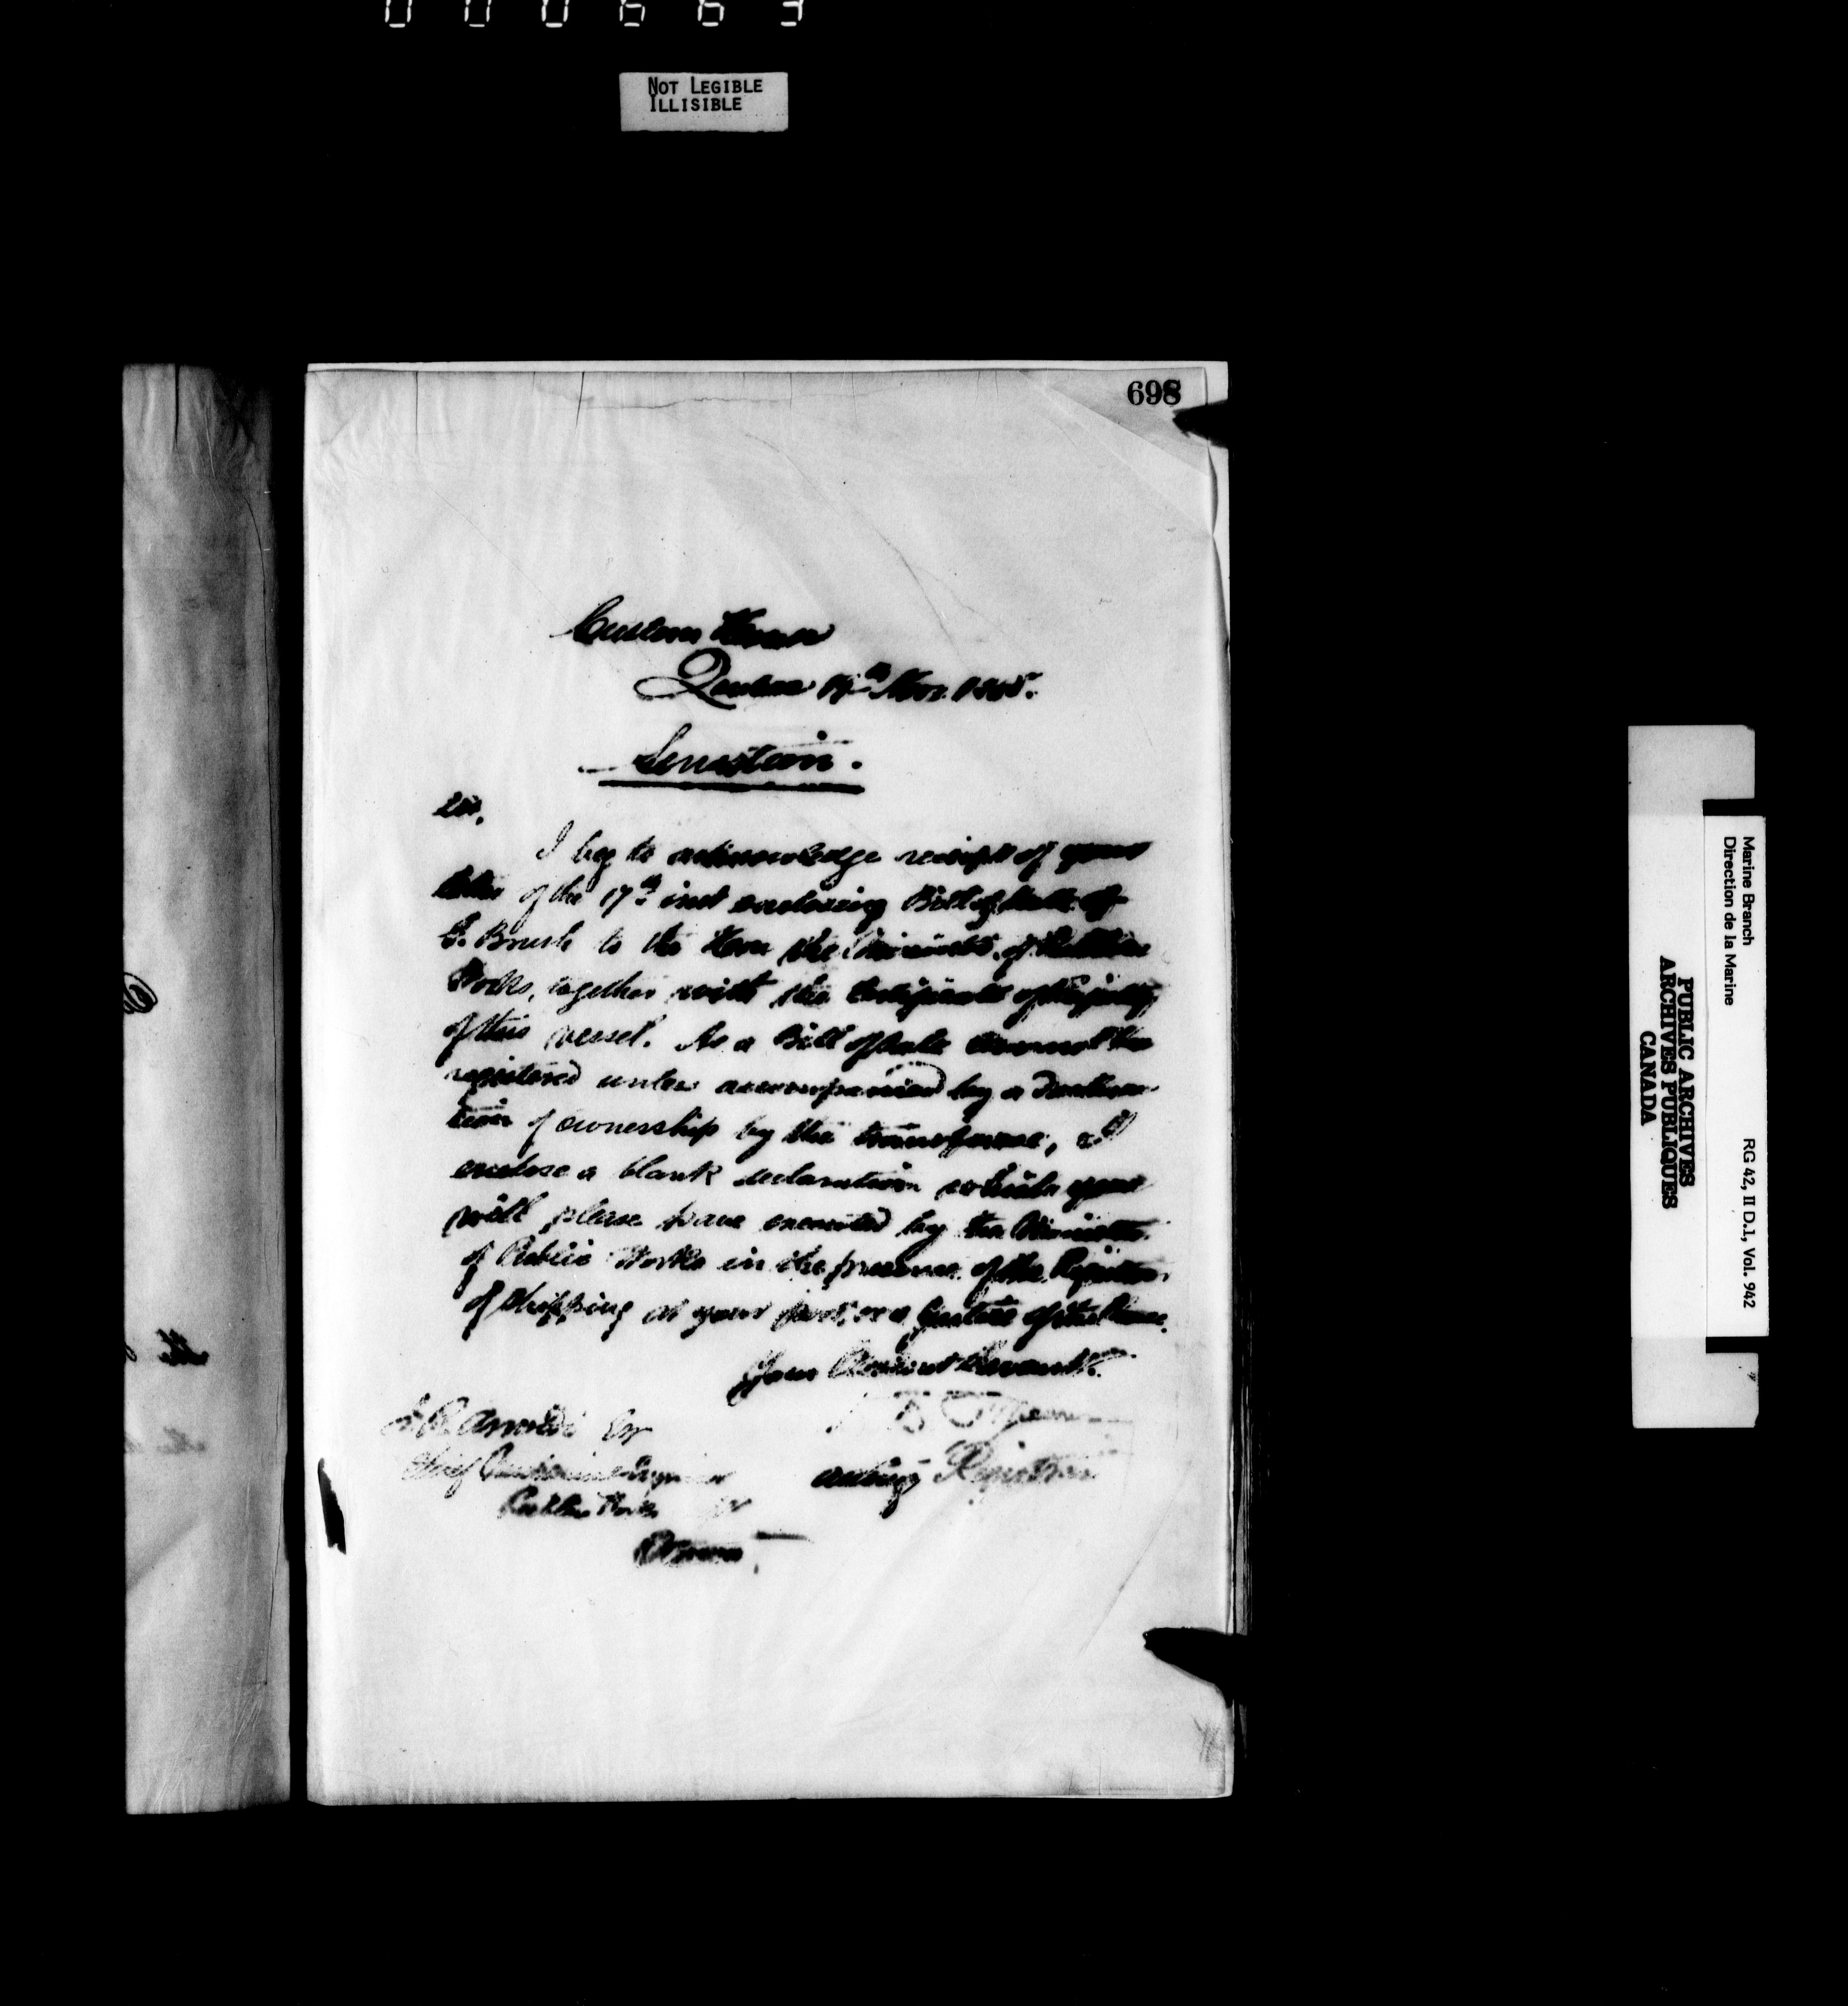 000663
NOT LEGIBLE
ILLISIBLE
698
Custom House
Quebec 19th Nov. 1885.
Sir,
I beg to acknowledge receipt of your
letter of the 17th inst enclosing Bill of Sale of
G. Brush to the Hon the Minister of Public
Works, together with the Certificate of Registry
of this vessel. As a Bill of Sale cannot be
registered unless accompanied by a Declara-
tion of ownership by the transferee, I
enclose a blank declaration which you
will please have executed by the Minister
of Public Works in the presence of the Registrar
of Shipping at your port, or a Justice of the Peace.
Your Obedient Servant.
Arnoldi Esq
Chief Mechanical Engineer
Public Works
Ottawa
acting Registrar
Marine Branch
Direction de la Marine
RG 42, II D.1, Vol. 942
PUBLIC ARCHIVES
ARCHIVES PUBLIQUES
CANADA